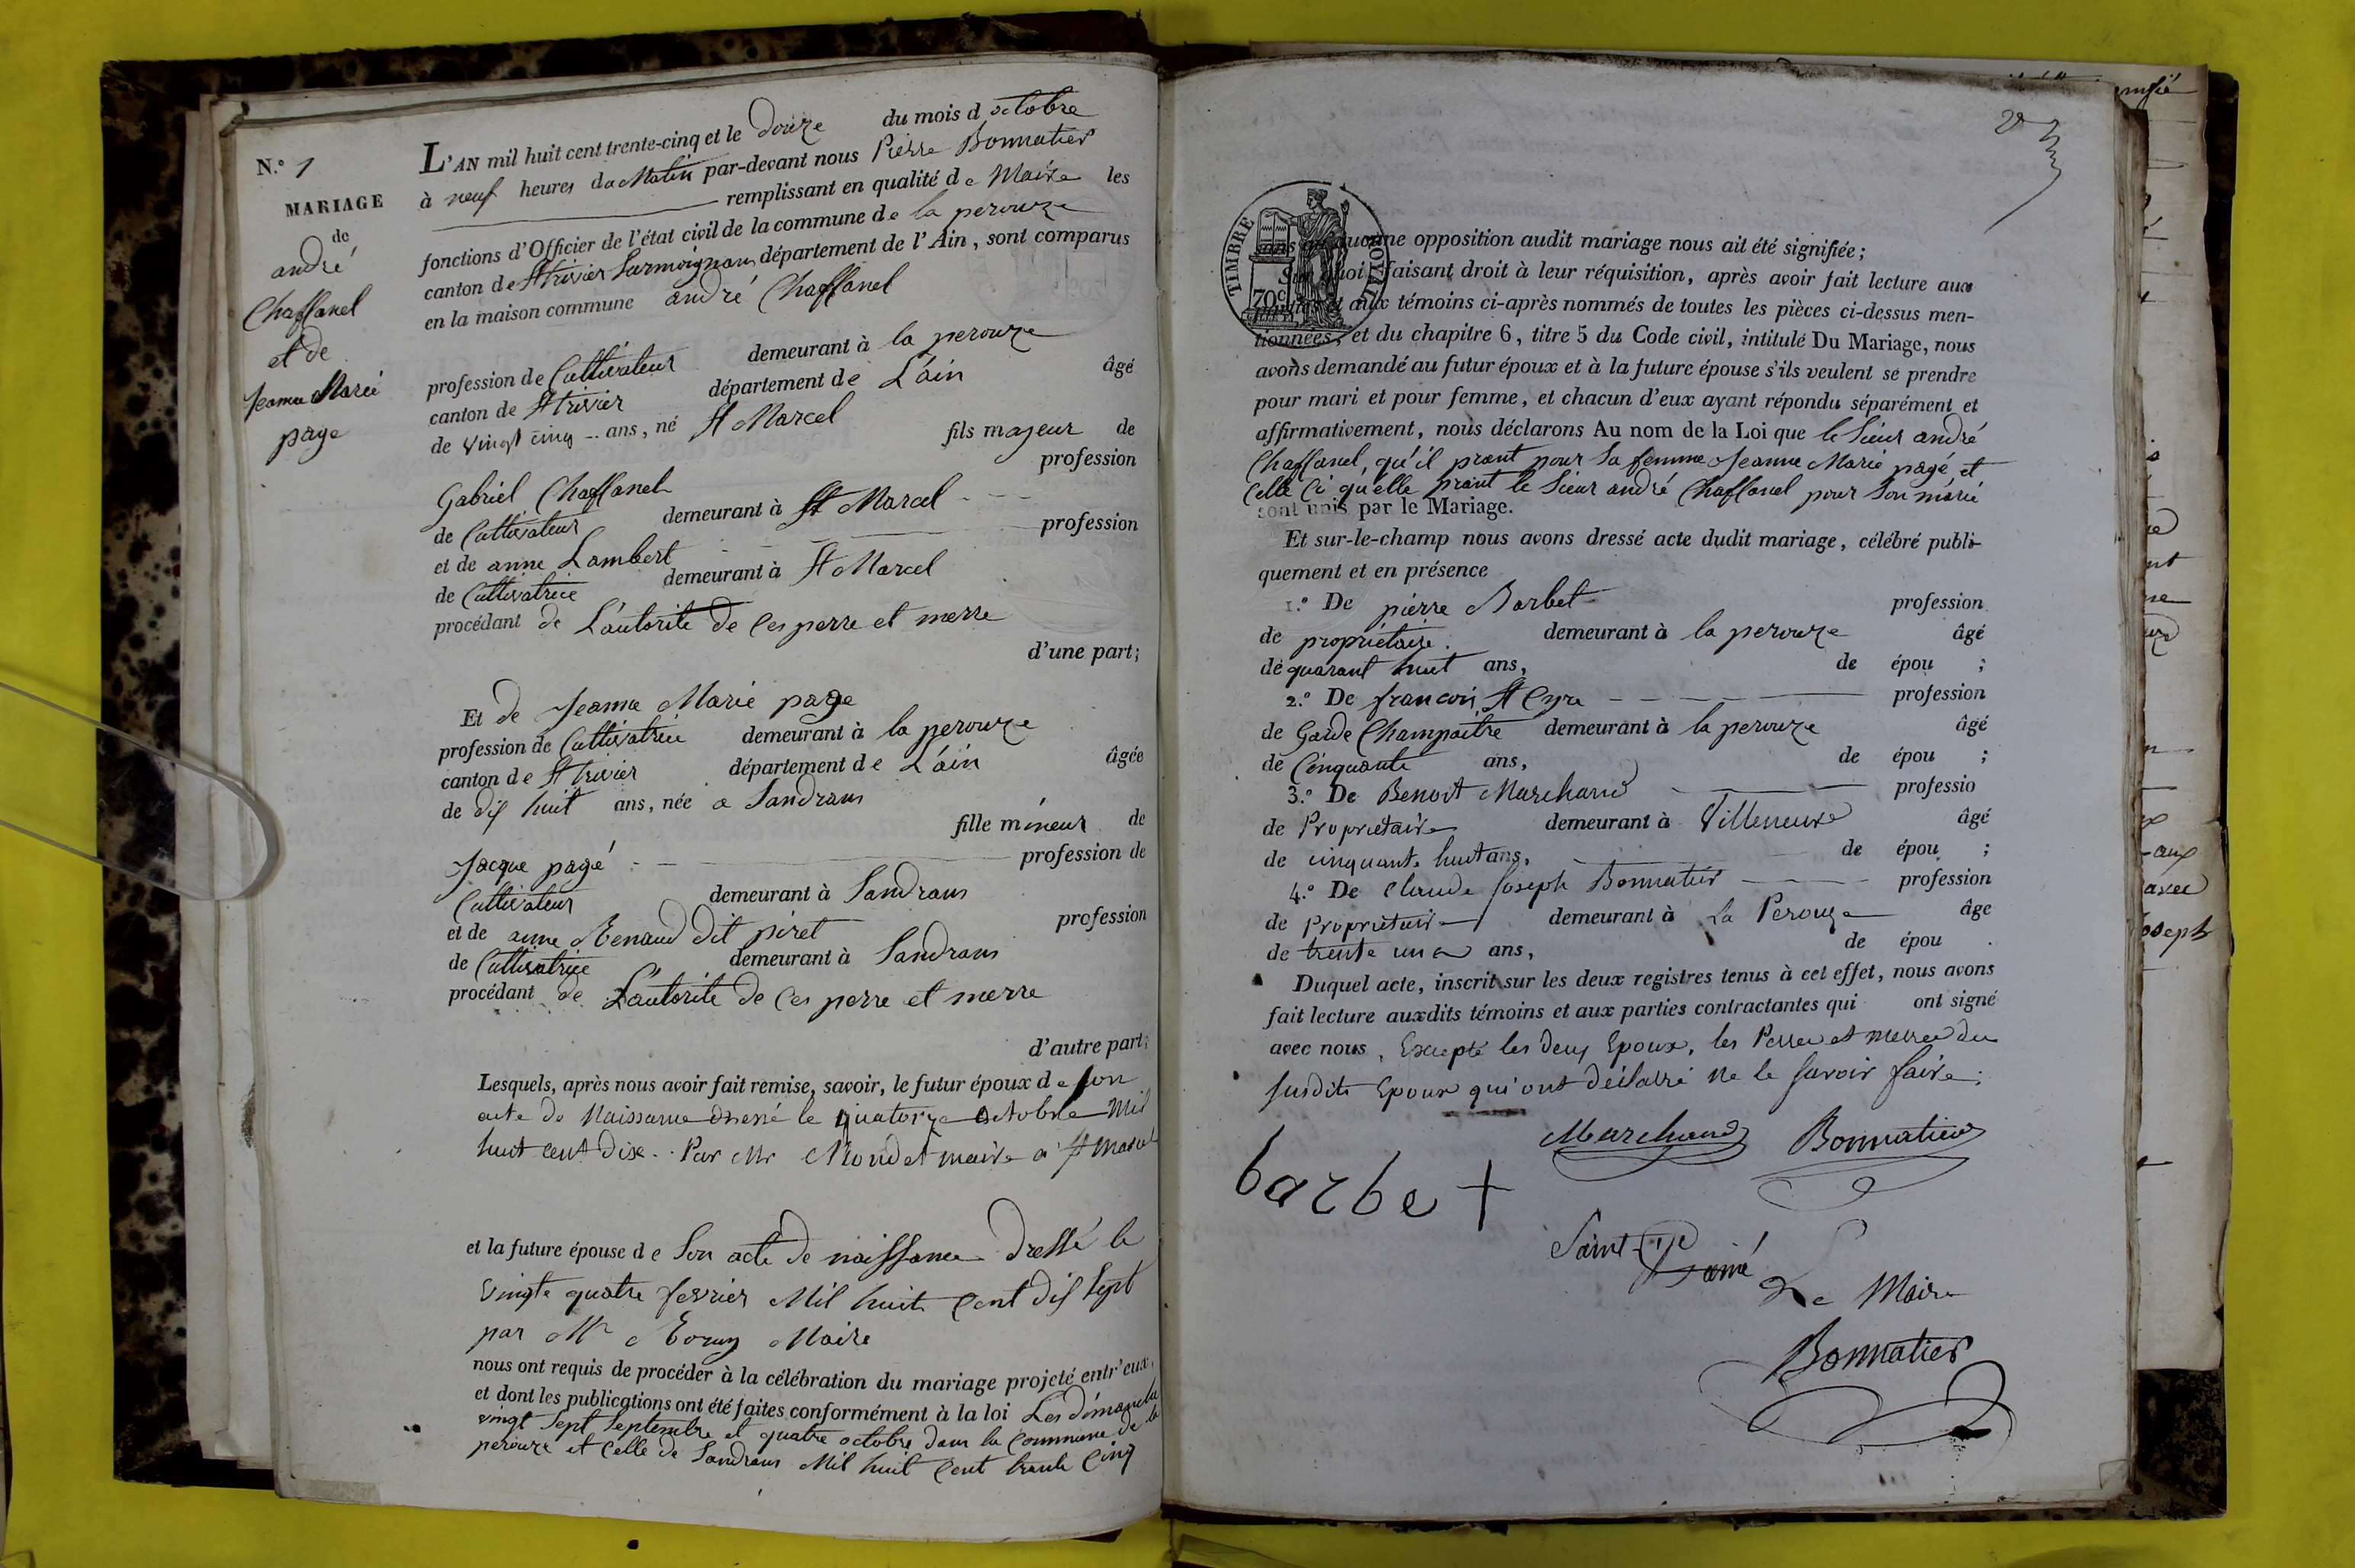 N.º 1
MARIAGE
de
andré
Chaffanel
et de
Jeanne Marie
page
L'AN mil huit cent trente-cinq et le douze du mois d octobre
à neuf heures du Matin par-devant nous Pierre Bonnatier
remplissant en qualité de Maire les
fonctions d'Officier de l'état civil de la commune de la perouze
canton de St trivier Surmoignans département de l'Ain, sont comparus
en la maison commune andré Chaffanel
profession de Cultivateur demeurant à la perouze
canton de St trivier département de L'ain âgé
de vingt cinq ans, né St Marcel
fils majeur de
Gabriel Chaffanel profession
de Cultivateur demeurant à St Marcel
et de anne Lambert profession
de Cultivatrice demeurant à St Marcel
procédant de L'autorite de Ces perre et merre
d'une part;
Et de Jeanne Marie page
profession de Cultivatrice demeurant à la perouze
canton de St trivier département de L'ain âgée
de dix huit ans, née a Sandrans
fille mineur de
Jacque pagé profession de
Cultivateur demeurant à Sandrans
et de anne Renaud dit piret profession
de Cultivatrice demeurant à Sandrans
procédant de L'autorite de Ces perre et merre
d'autre part;
Lesquels, après nous avoir fait remise, savoir, le futur époux de son
acte de Naissance dressé le quatorze octobre Mil
huit cent dix. Par Mr Mondet maire a St Marcel
et la future épouse de Son acte de naissance dressé le
vingte quatre fevrier Mil huit Cent dix Sept
par Mr Maire
nous ont requis de procéder à la célébration du mariage projeté entr'eux,
et dont les publications ont été faites conformément à la loi Les dimanche
vingt Sept Septembre et quatre octobre dans la Commune de la
perouze et Celle de Sandrans Mil huit Cent trente Cinq
TIMBRE ROYAL
70c
sans qu'aucune opposition audit mariage nous ait été signifiée;
Sur quoi, faisant droit à leur réquisition, après avoir fait lecture aux
parties et aux témoins ci-après nommés de toutes les pièces ci-dessus men-
tionnées, et du chapitre 6, titre 5 du Code civil, intitulé Du Mariage, nous
avons demandé au futur époux et à la future épouse s'ils veulent se prendre
pour mari et pour femme, et chacun d'eux ayant répondu séparément et
affirmativement, nous déclarons Au nom de la Loi que le Sieur andré
Chaffanel, qu'il prant pour Sa femme Jeanne Marie pagé et
Celle Ci quelle prant le Sieur andré Chaffanel pour Son marié
sont unis par le Mariage.
Et sur-le-champ nous avons dressé acte dudit mariage, célébré publi-
quement et en présence
1.º De pierre Barbet profession
de propriétaire. demeurant à la perouze âgé
de quarant huit ans, de épou ;
2.º De francois St Cyre profession
de Garde Champaitre demeurant à la perouze âgé
de Cinquante ans, de épou ;
3.º De Benoit Marchand professio
de Propriétaire demeurant à Villeneuve âgé
de cinquante huit ans, de épou ;
4.º De Claude Joseph Bonnatier profession
de Propriétaire demeurant à La Perouze âge
de trente un ans, de épou .
Duquel acte, inscrit sur les deux registres tenus à cet effet, nous avons
fait lecture auxdits témoins et aux parties contractantes qui ont signé
avec nous, Excepté les deux Epoux, les Perre et merre du
susdits Epoux qui ont déclarré ne le savoir faire.
Marchand Bonnatier
barbet
Saint
Le Maire
Bonnatier